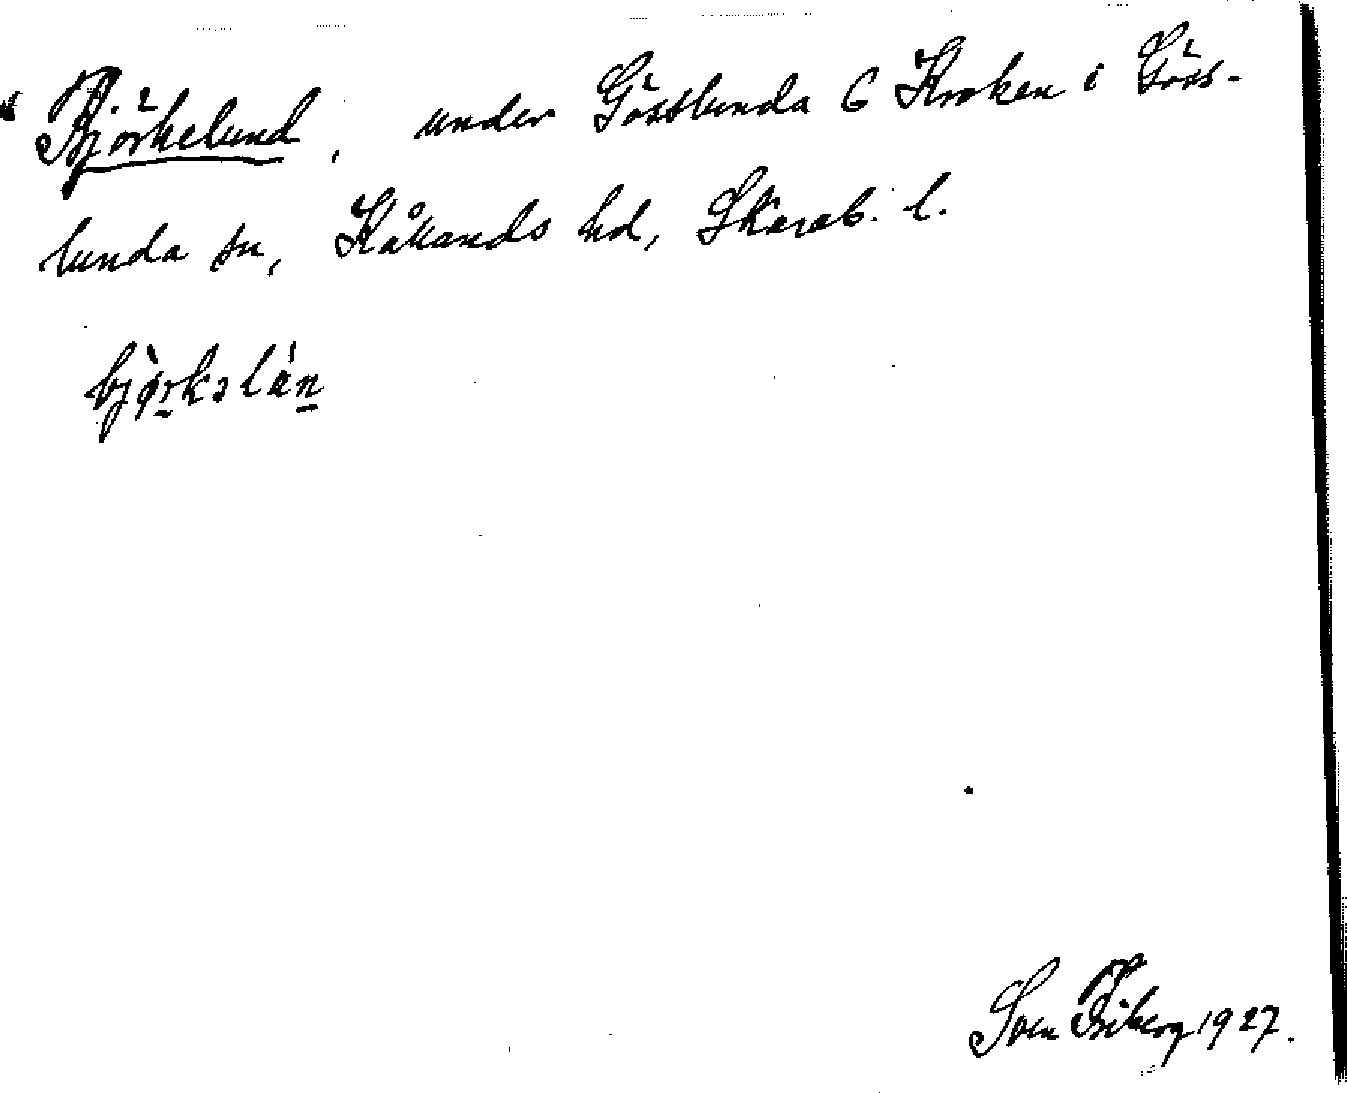 Björkelund, under Gösslunda 6 Kroken i Göss-
lunda sn, Kållands hd, Skarab. l.
bjö̀rkəlán
Sven Friberg 1927.